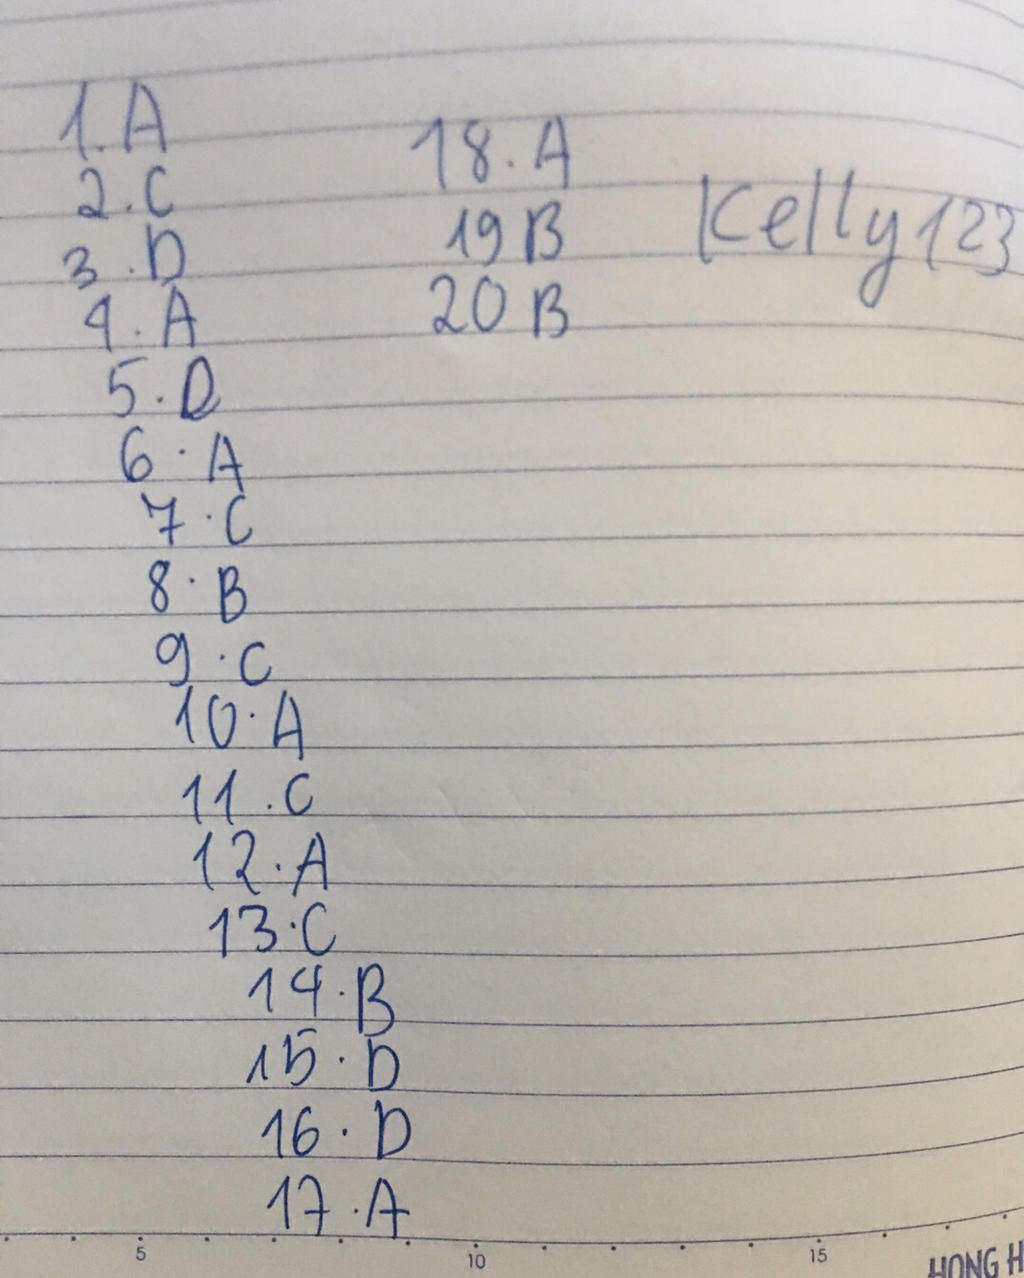 1.A
2.C
3.D
4.A
5.D
6.A
7.C
8.B
9.C
10.A
11.C
12.A
13.C
14.B
15.D
16.D
17.A
18.A
19 B
20 B
Kelly123
5 10 15
HONG H